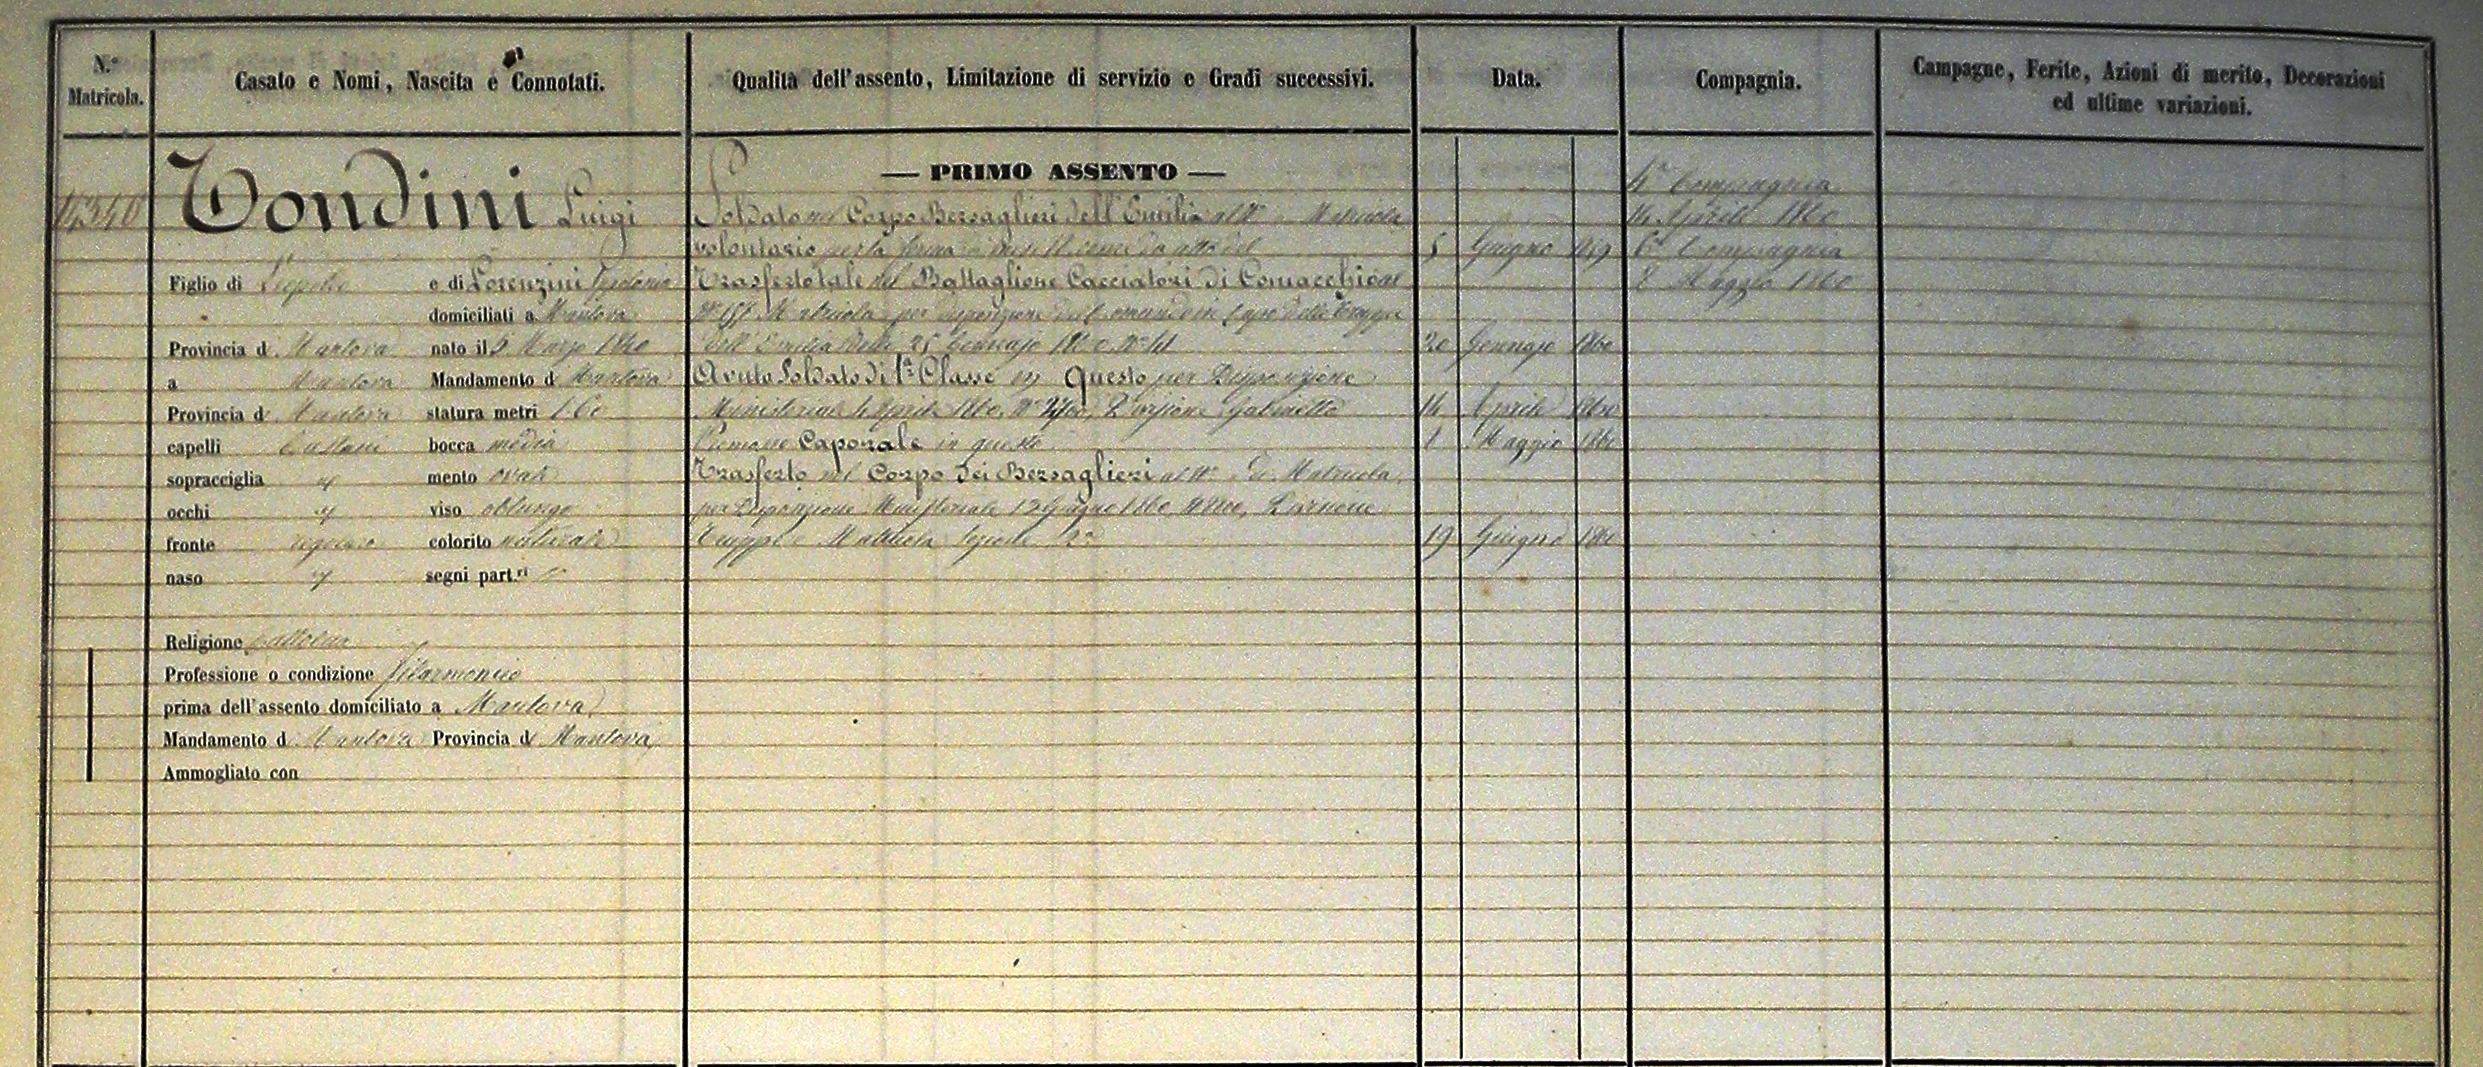 N.º Matricola.
Casato e Nomi, Nascita e Connotati.
Qualità dell'assento, Limitazione di servizio e Gradi successivi.
Data.
Compagnia.
Campagne, Ferite, Azioni di merito, Decorazioni
ed ultime variazioni.
Tondini Luigi
Figlio di e di Lorenzini
domiciliati a Mantova
Provincia di Mantova nato il 9 Marzo 1840
a Mantova Mandamento di Mantova
Provincia di Mantova statura metri 1.60
capelli Castani bocca media
sopracciglia id mento ovale
occhi id viso oblungo
fronte regolare colorito naturale
naso id segni part.ri
Religione Cattolica
Professione o condizione Filarmonico
prima dell'assento domiciliato a Mantova
Mandamento di Mantova Provincia di Mantova
Ammogliato con
— PRIMO ASSENTO —
Soldato nel Corpo Bersaglieri dell'Emilia al Nº Matricola
volontario per la ferma di mesi 18 come da atto del 5 Giugno 1859
Trasferto tale nel Battaglione Cacciatori di Comacchio al
Nº Matricola per disposizione del Comando in Capo delle Truppe
dell'Emilia delli 25 Gennajo 1860 Nº 20 Gennajo 1860
Avuto Soldato di 1ª Classe in Questo per Disposizione
Ministeriale 4 Aprile 1860, Nº Divisione Gabinetto 14 Aprile 1860
Caporale in questo 8 Maggio 1860
Trasferto nel Corpo dei Bersaglieri al Nº di Matricola
per Disposizione Ministeriale 13 Giugno 1860, Divisione
Truppe e Matricola Sezione 2ª 19 Giugno 1860
4ª Compagnia
14 Aprile 1860
6ª Compagnia
8 Maggio 1860